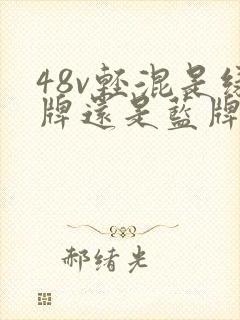 48v輕混是綠
牌還是藍牌
郝绪光